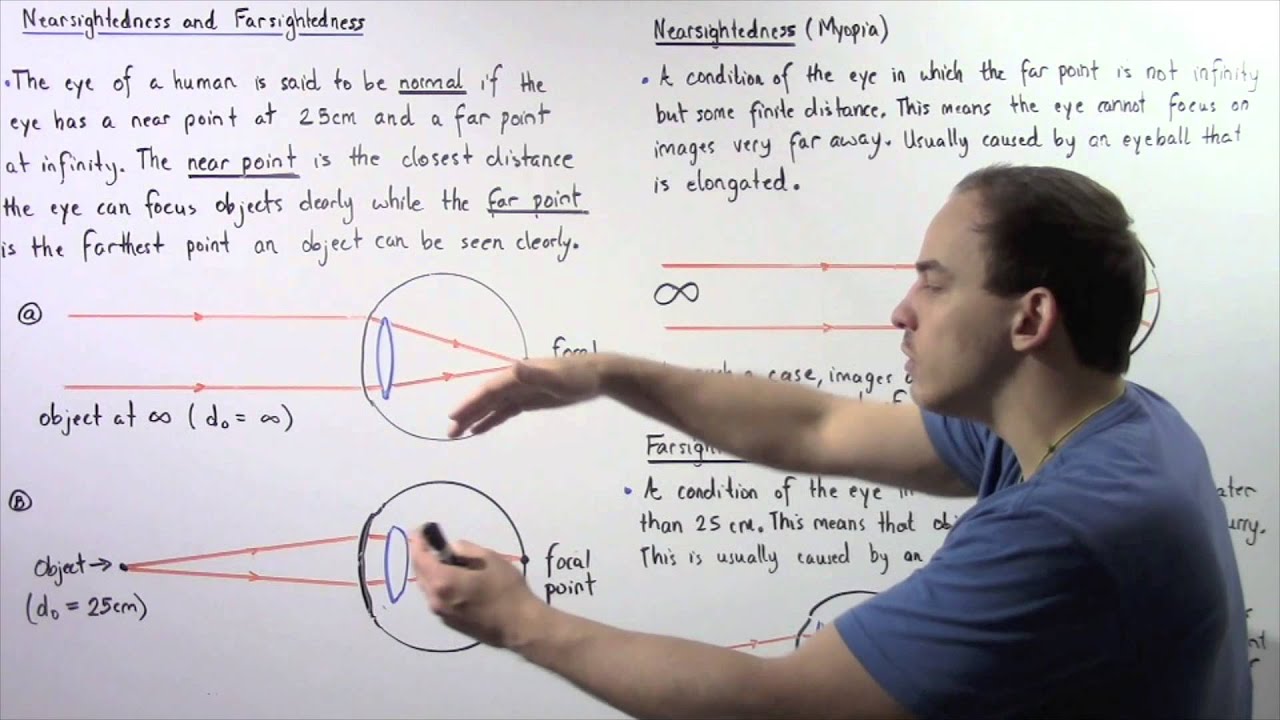 Nearsightedness and Farsightedness
• The eye of a human is said to be normal if the
eye has a near point at 25cm and a far point
at infinity. The near point is the closest distance
the eye can focus objects clearly while the far point
is the farthest point an object can be seen clearly.
(a)
focal
object at ∞ (d₀ = ∞)
(B)
Object →
(d₀ = 25cm)
focal
point
Nearsightedness (Myopia)
• A condition of the eye in which the far point is not infinity
but some finite distance. This means the eye cannot focus on
images very far away. Usually caused by an eyeball that
is elongated.
∞
case, images
• A condition of the eye
than 25 cm. This means that
This is usually caused by an